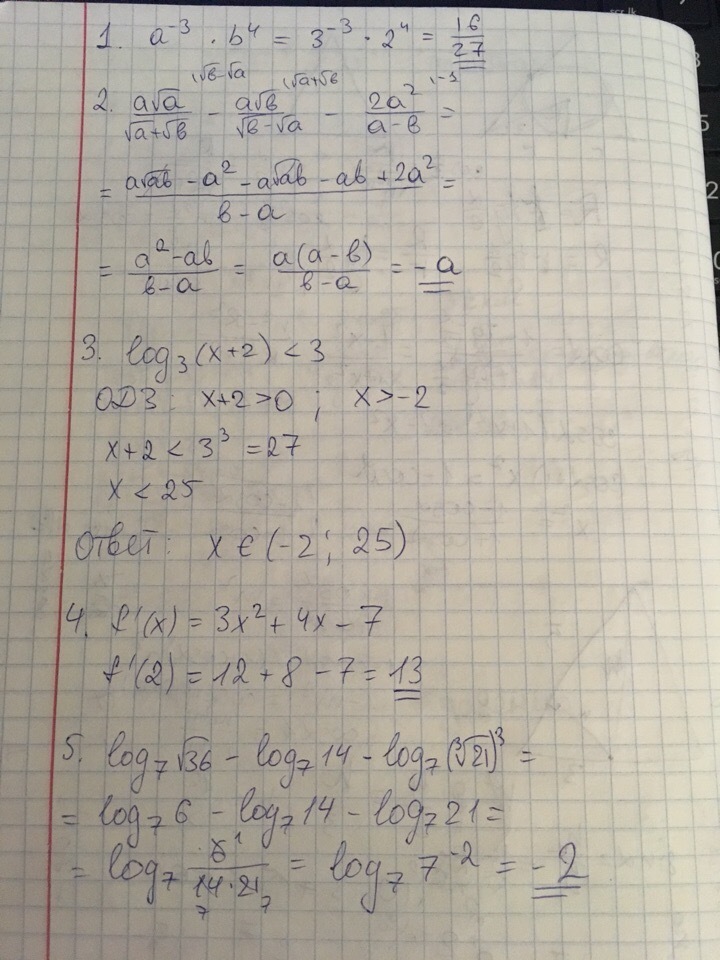 1. a⁻³ · b⁴ = 3⁻³ · 2⁴ = 16/27
2. a√a/(√a+√в) |√в-√a - a√в/(√в-√a) |√a+√в - 2a²/(a-в) |-1 =
= (a√ab - a² - a√ab - ab + 2a²)/(в-a) =
= (a²-ab)/(в-a) = a(a-в)/(в-a) = -a
3. log₃(x+2) < 3
ОДЗ: x+2>0 ; x>-2
x+2 < 3³ = 27
x < 25
Ответ: x ∈ (-2; 25)
4. f'(x) = 3x² + 4x - 7
f'(2) = 12 + 8 - 7 = 13
5. log₇√36 - log₇14 - log₇(∛21)³ =
= log₇6 - log₇14 - log₇21 =
= log₇ 6 1/(14·21) 7 7 = log₇7⁻² = -2